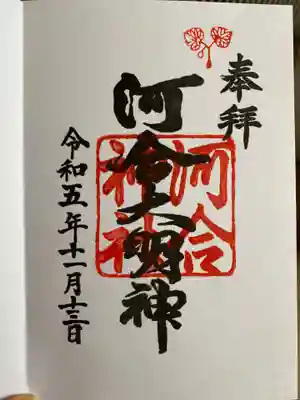 奉拝
河合大明神
河合神社
令和五年十一月十三日